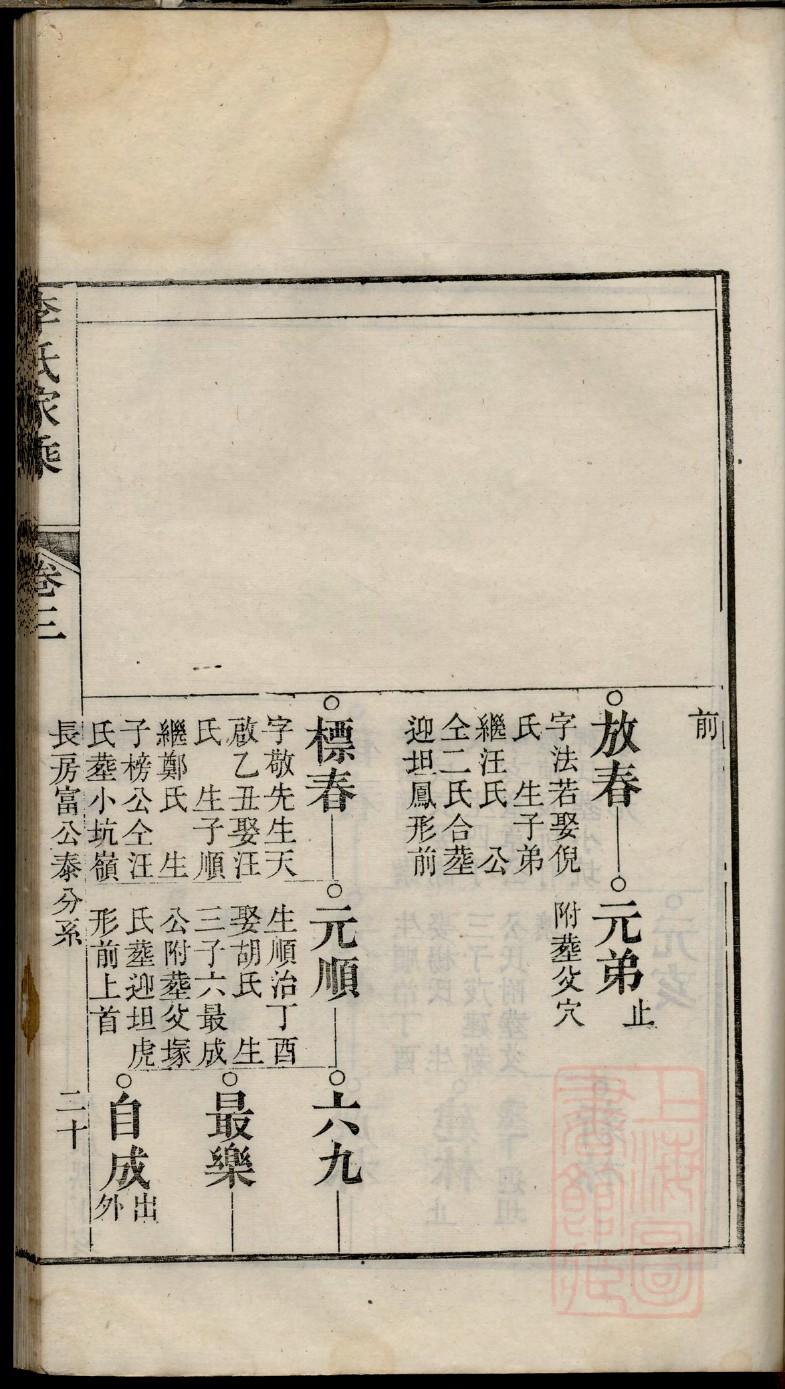 前
放春
字法若娶倪
氏 生子弟
繼汪氏 公
仝二氏合塟
迎坦鳳形前
元弟止
附塟父穴
標春
字敬先生天
啟乙丑娶汪
氏 生子順
繼鄭氏 生
子榜公仝汪
氏塟小坑嶺
元順
生順治丁酉
娶胡氏 生
三子六最成
公附塟父塚
氏塟迎坦虎
形前上首
六九
最樂
自成
出
外
李氏家乘
卷三
長房富公泰分系
二十
上海圖書館藏